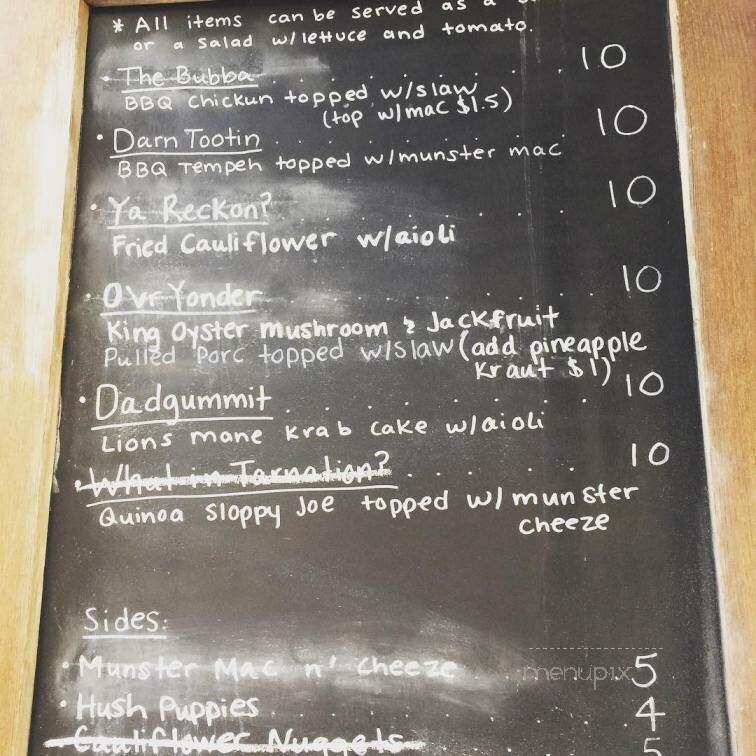 * All items can be served as a
or a salad w/lettuce and tomato.
• The Bubba . . . . . . . . . 10
BBQ chickun topped w/slaw
(top w/mac $1.5)
• Darn Tootin . . . . . . . . . 10
BBQ Tempeh topped w/munster mac
• Ya Reckon? . . . . . . . . . 10
Fried Cauliflower w/aioli
• Ovr Yonder . . . . . . . . . 10
King Oyster mushroom & Jackfruit
Pulled Porc topped w/slaw (add pineapple
Kraut $1)
• Dadgummit . . . . . . . . . 10
Lions mane Krab cake w/aioli
• What in Tarnation? . . . . . . 10
Quinoa Sloppy Joe topped w/munster
cheeze
Sides:
• Munster Mac n' Cheeze . . . 5
menupix
• Hush Puppies . . . . . . . . 4
• Cauliflower Nuggets 5